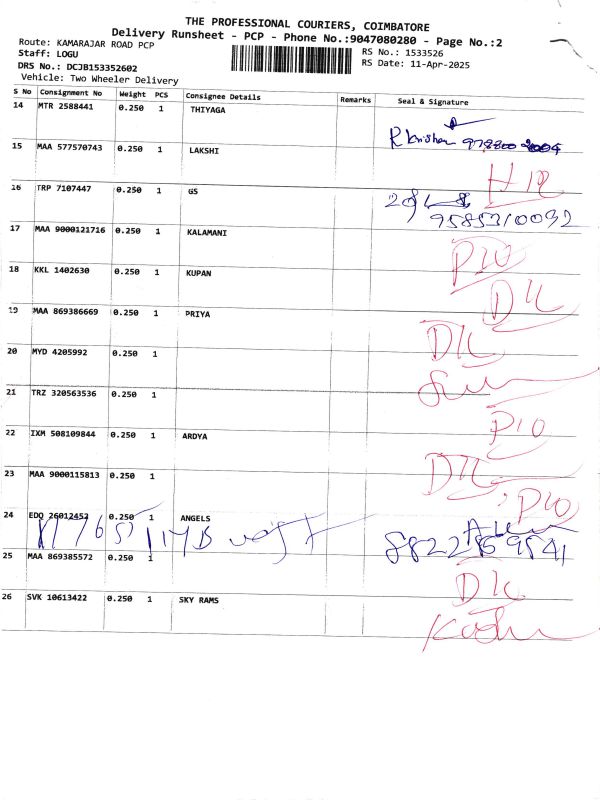 THE PROFESSIONAL COURIERS, COIMBATORE
Delivery Runsheet - PCP - Phone No.:9047080280 - Page No.:2
Route: KAMARAJAR ROAD PCP
Staff: LOGU
RS No.: 1533526
DRS No.: DCJB153352602
RS Date: 11-Apr-2025
Vehicle: Two Wheeler Delivery
S No Consignment No Weight PCS Consignee Details Remarks Seal & Signature
14 MTR 2588441 0.250 1 THIYAGA
15 MAA 577570743 0.250 1 LAKSHI
16 TRP 7107447 0.250 1 GS
9585310032
17 MAA 9000121716 0.250 1 KALAMANI
18 KKL 1402630 0.250 1 KUPAN
D/L
19 MAA 869386669 0.250 1 PRIYA
D/L
20 MYD 4205992 0.250 1
21 TRZ 320563536 0.250 1
22 IXM 508109844 0.250 1 ARDYA
D/L
23 MAA 9000115813 0.250 1
24 EDQ 26012452 0.250 1 ANGELS
25 MAA 869385572 0.250 1
D/L
26 SVK 10613422 0.250 1 SKY RAMS